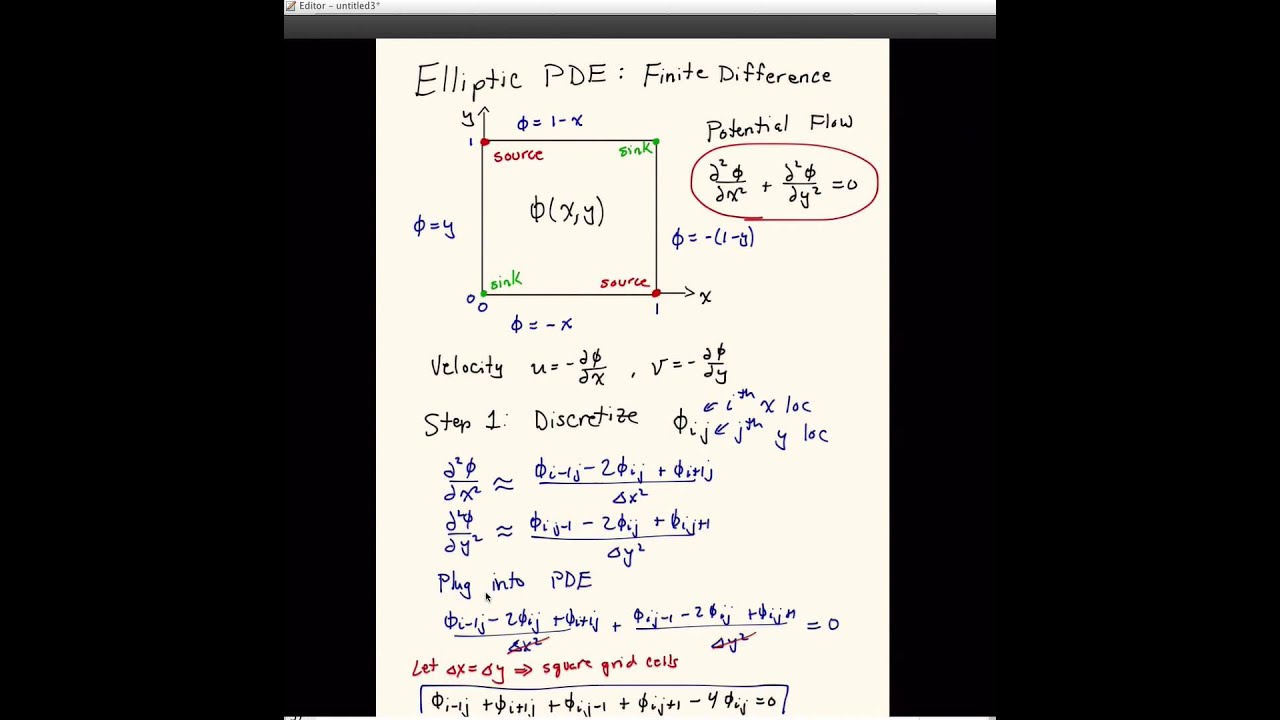 Editor – untitled3*
Elliptic PDE: Finite Difference
y
ϕ = 1-x
Potential Flow
1
source
sink
∂²ϕ/∂x² + ∂²ϕ/∂y² = 0
ϕ(x,y)
ϕ = y
ϕ = -(1-y)
sink
source
0
0
1
x
ϕ = -x
Velocity u = -∂ϕ/∂x , v = -∂ϕ/∂y
Step 1: Discretize ϕij
← ith x loc
← jth y loc
∂²ϕ/∂x² ≈ (ϕi-1j - 2ϕij + ϕi+1j)/Δx²
∂²ϕ/∂y² ≈ (ϕij-1 - 2ϕij + ϕij+1)/Δy²
Plug into PDE
(ϕi-1j - 2ϕij + ϕi+1j)/Δx² + (ϕij-1 - 2ϕij + ϕij+1)/Δy² = 0
Let Δx = Δy ⇒ square grid cells
ϕi-1j + ϕi+1j + ϕij-1 + ϕij+1 - 4ϕij = 0